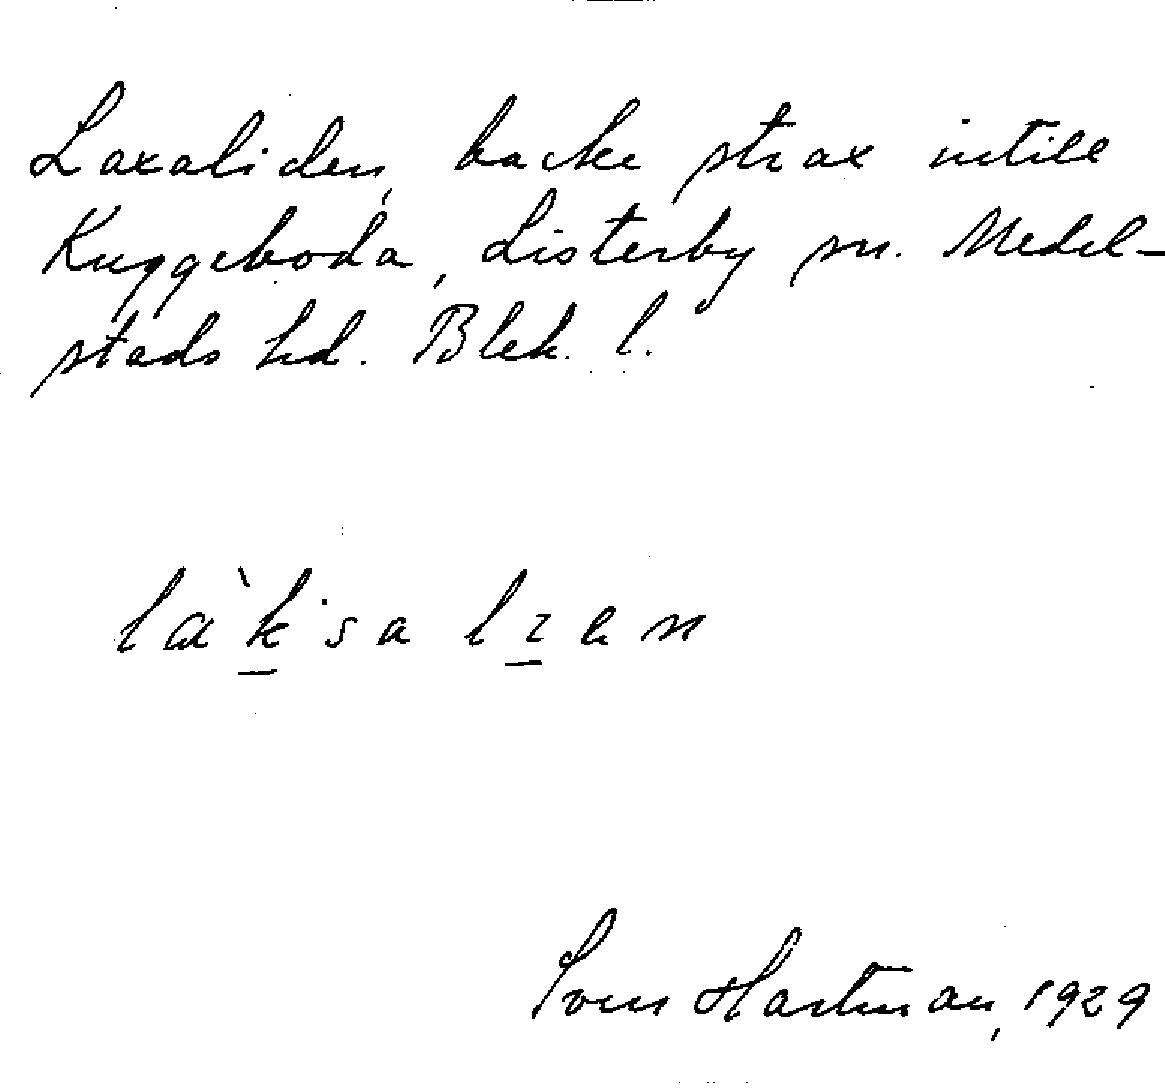 Laxaliden, backe strax intill
Kuggeboda, Listerby sn. Medel-
stads hd. Blek. l.
là`k̲·sa lɩ̲en
Sven Hartman, 1929